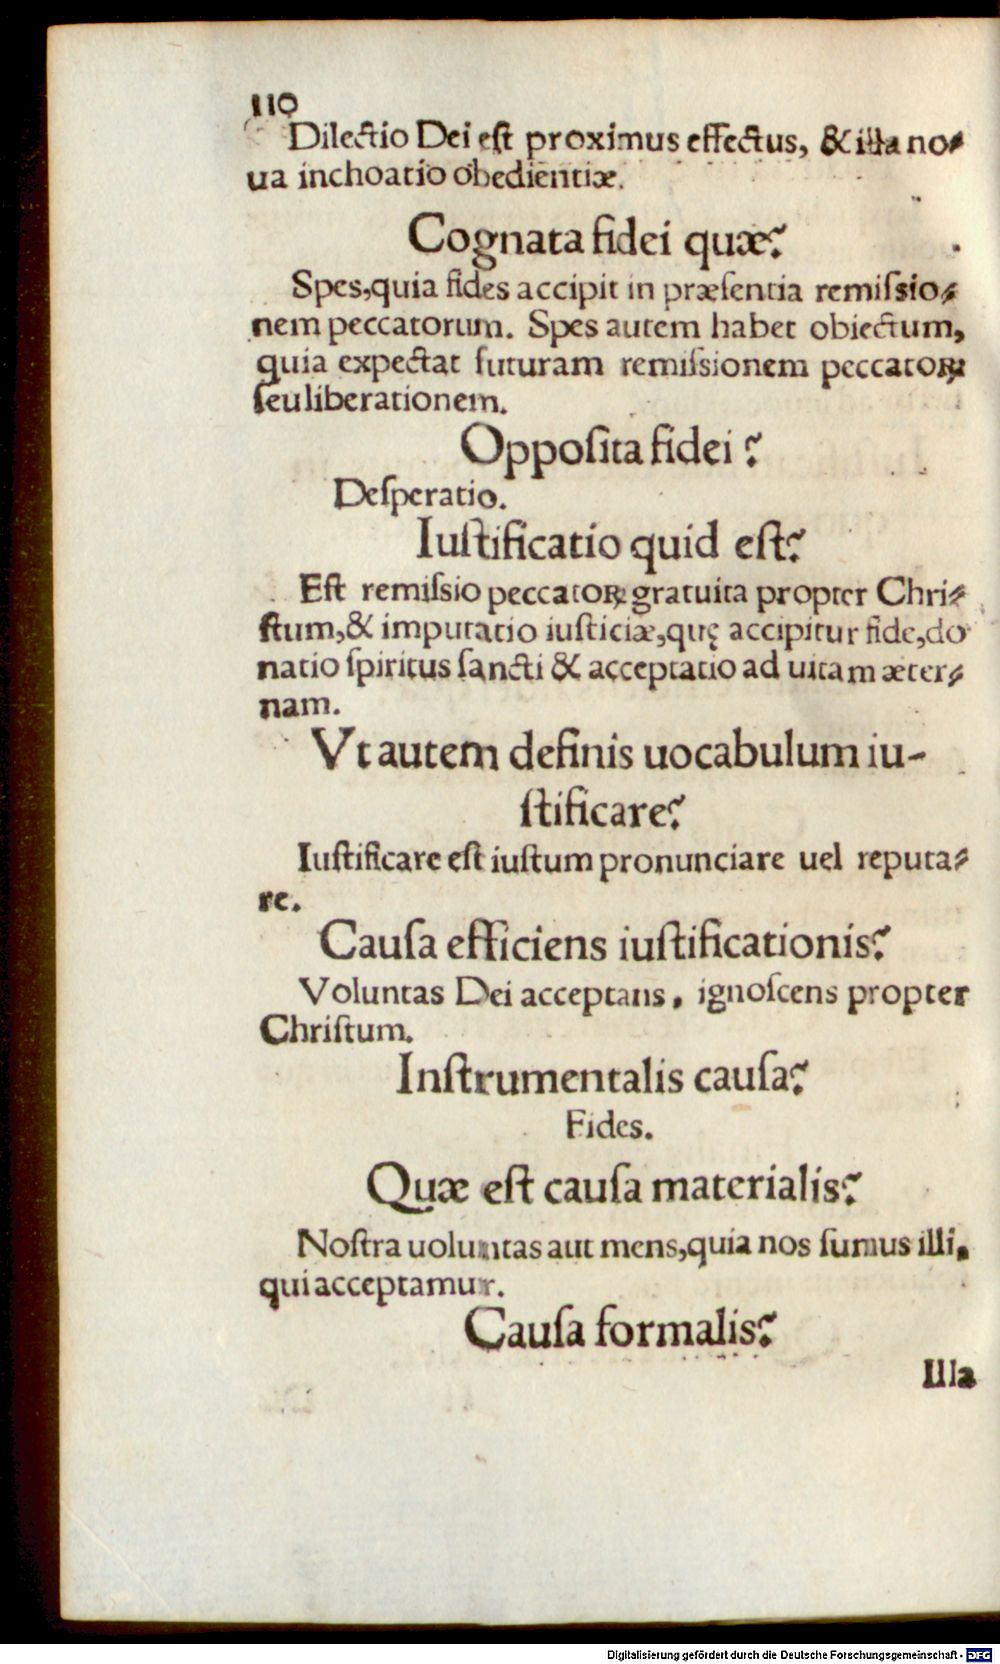 110
Dilectio Dei est proximus effectus, & illa no⸗
ua inchoatio obedientiæ.
Cognata fidei quæ?
Spes, quia fides accipit in præſentia remiſsio⸗
nem peccatorum. Spes autem habet obiectum,
quia expectat futuram remiſsionem peccatoꝝ
ſeu liberationem.
Oppoſita fidei?
Deſperatio.
Iuſtificatio quid eſt?
Eſt remiſsio peccatoꝝ gratuita propter Chri⸗
ſtum, & imputatio iuſticiæ, quę accipitur fide, do
natio ſpiritus ſancti & acceptatio ad uitam æter⸗
nam.
Vt autem definis uocabulum iu-
ſtificare?
Iuſtificare eſt iuſtum pronunciare uel reputa⸗
re.
Cauſa efficiens iuſtificationis?
Voluntas Dei acceptans, ignoſcens propter
Chriſtum.
Inſtrumentalis cauſa?
Fides.
Quæ eſt cauſa materialis?
Noſtra uoluntas aut mens, quia nos ſumus illi,
qui acceptamur.
Cauſa formalis?
Illa
Digitalisierung gefördert durch die Deutsche Forschungsgemeinschaft - DFG